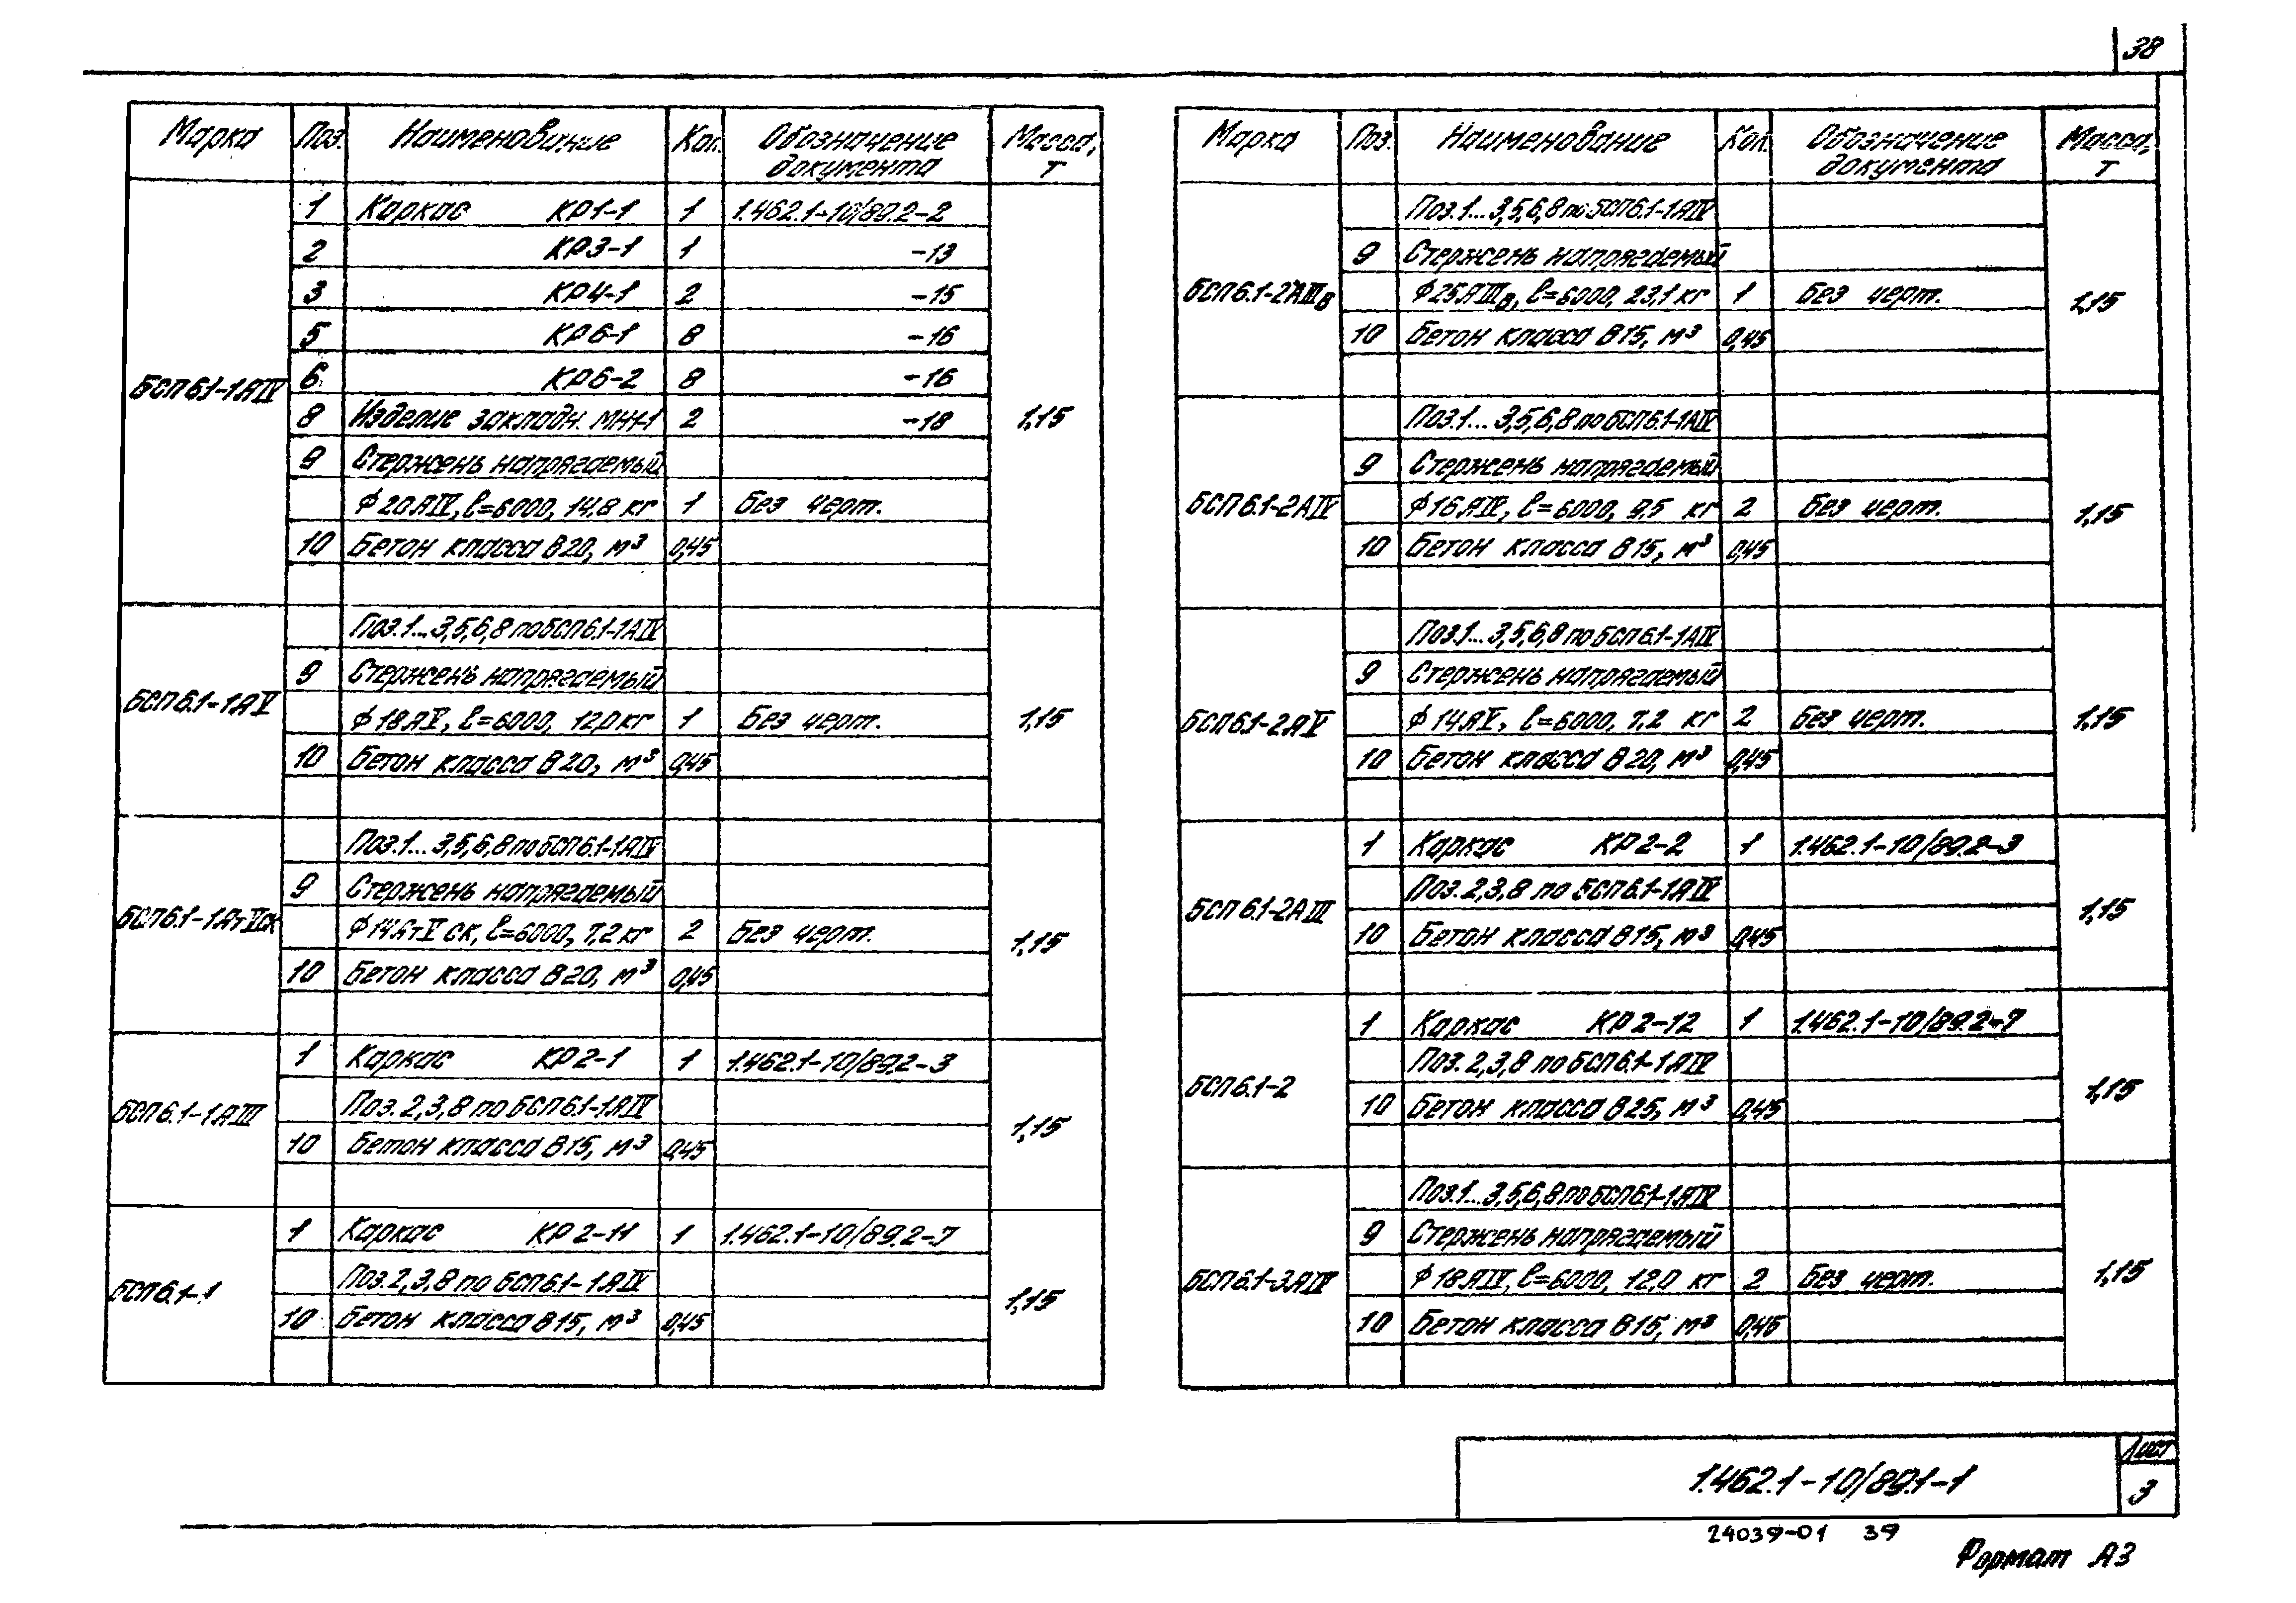 38
Марка Поз. Наименование Кол. Обозначение документа Масса, т
БСП6.1-1АIV 1,15
1 Каркас КР1-1 1 1.462.1-10/89.2-2
2 КР3-1 1 -13
3 КР4-1 2 -15
5 КР6-1 8 -16
6 КР6-2 8 -16
8 Изделие закладн. МН1-1 2 -18
9 Стержень напрягаемый
ϕ20АIV, ℓ=6000, 14,8 кг 1 Без черт.
10 Бетон класса В20, м³ 0,45
БСП6.1-1АV 1,15
Поз.1...3,5,6,8 по БСП6.1-1АIV
9 Стержень напрягаемый
ϕ18АV, ℓ=6000, 12,0 кг 1 Без черт.
10 Бетон класса В20, м³ 0,45
БСП6.1-1АтVск 1,15
Поз.1...3,5,6,8 по БСП6.1-1АIV
9 Стержень напрягаемый
ϕ14АтV ск, ℓ=6000, 7,2 кг 2 Без черт.
10 Бетон класса В20, м³ 0,45
БСП6.1-1АIII 1,15
1 Каркас КР2-1 1 1.462.1-10/89.2-3
Поз.2,3,8 по БСП6.1-1АIV
10 Бетон класса В15, м³ 0,45
БСП6.1-1 1,15
1 Каркас КР2-11 1 1.462.1-10/89.2-7
Поз.2,3,8 по БСП6.1-1АIV
10 Бетон класса В15, м³ 0,45
Марка Поз. Наименование Кол. Обозначение документа Масса, т
БСП6.1-2АIIIв 1,15
Поз.1...3,5,6,8 по БСП6.1-1АIV
9 Стержень напрягаемый
ϕ25АIIIв, ℓ=6000, 23,1 кг 1 Без черт.
10 Бетон класса В15, м³ 0,45
БСП6.1-2АIV 1,15
Поз.1...3,5,6,8 по БСП6.1-1АIV
9 Стержень напрягаемый
ϕ16АIV, ℓ=6000, 9,5 кг 2 Без черт.
10 Бетон класса В15, м³ 0,45
БСП6.1-2АV 1,15
Поз.1...3,5,6,8 по БСП6.1-1АIV
9 Стержень напрягаемый
ϕ14АV, ℓ=6000, 7,2 кг 2 Без черт.
10 Бетон класса В20, м³ 0,45
БСП6.1-2АIII 1,15
1 Каркас КР2-2 1 1.462.1-10/89.2-3
Поз.2,3,8 по БСП6.1-1АIV
10 Бетон класса В15, м³ 0,45
БСП6.1-2 1,15
1 Каркас КР2-12 1 1.462.1-10/89.2-7
Поз.2,3,8 по БСП6.1-1АIV
10 Бетон класса В25, м³ 0,45
БСП6.1-3АIV 1,15
Поз.1...3,5,6,8 по БСП6.1-1АIV
9 Стержень напрягаемый
ϕ18АIV, ℓ=6000, 12,0 кг 2 Без черт.
10 Бетон класса В15, м³ 0,45
1.462.1-10/89.1-1
Лист
3
24039-01 39
Формат А3